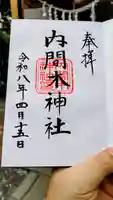 奉拝
内間木神社
令和八年四月十五日